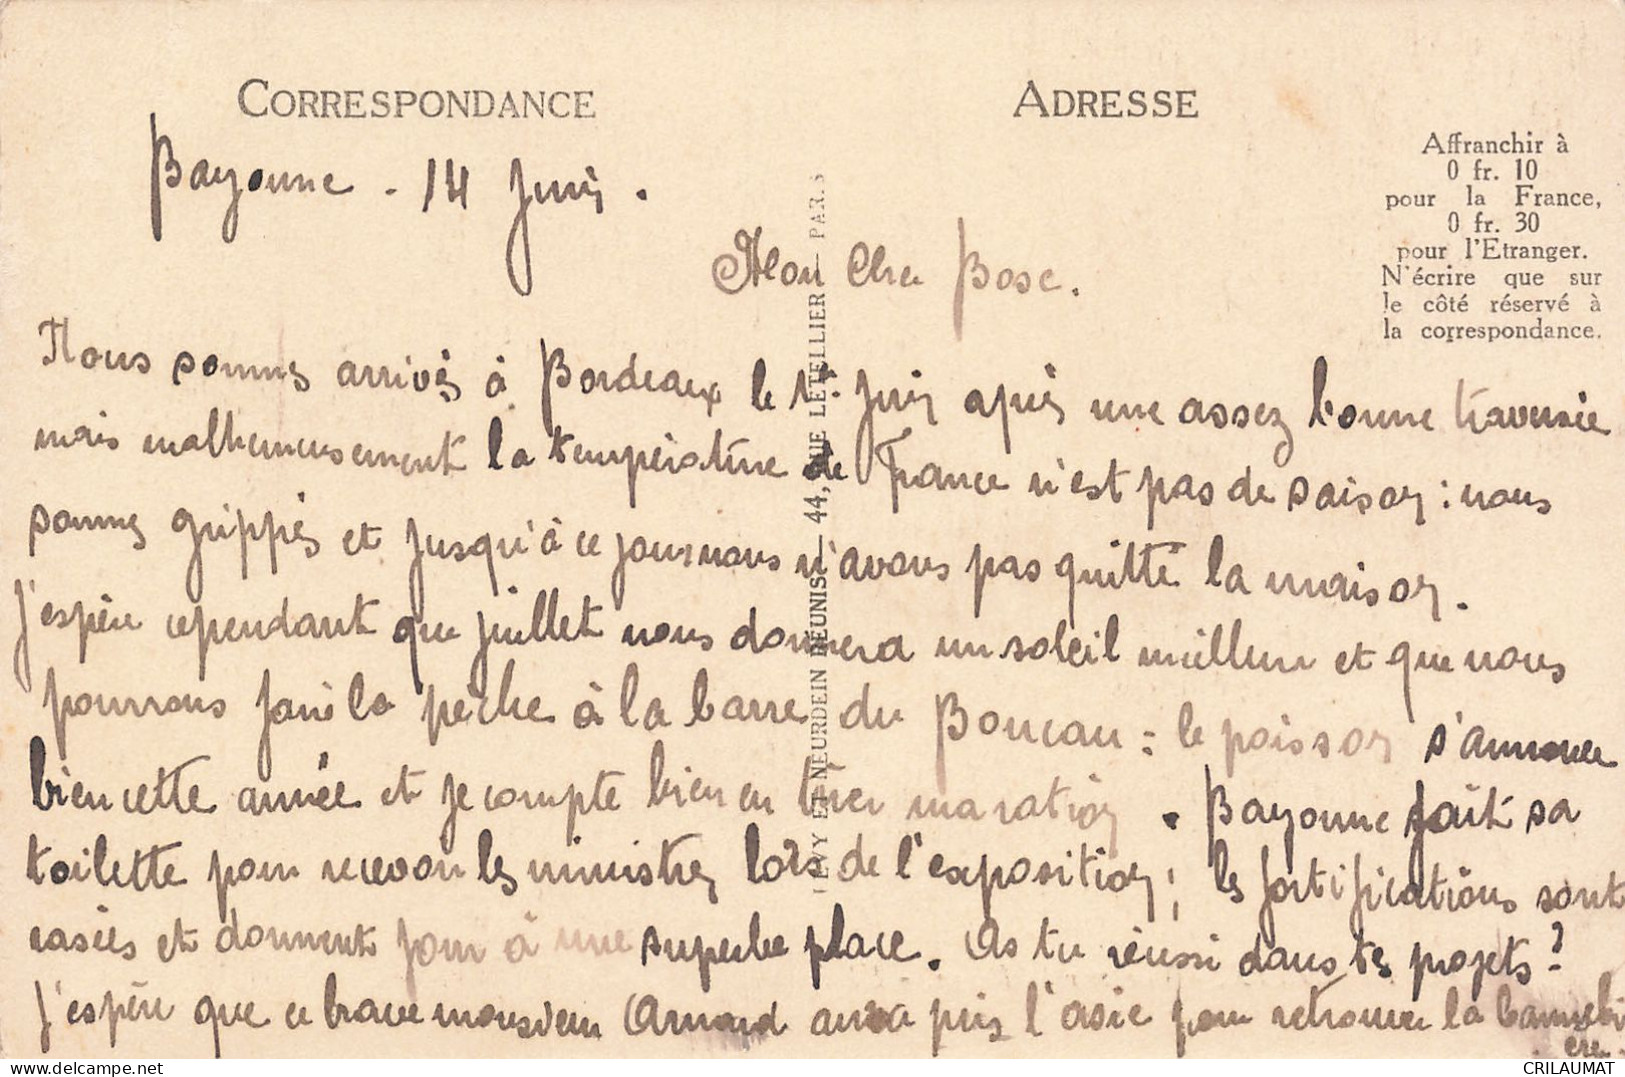 CORRESPONDANCE
ADRESSE
Affranchir à
0 fr. 10
pour la France,
0 fr. 30
pour l'Etranger.
N'écrire que sur
le côté réservé à
la correspondance.
LEVY ET NEURDEIN REUNIS — 44, RUE LETELLIER — PARIS
Bayonne - 14 Juin .
Mon Cher Bosc.
Nous sommes arrivés à Bordeaux le 1er Juin après une assez bonne traversée
mais malheureusement la température de France n'est pas de saison : nous
sommes grippés et jusqu'à ce jour nous n'avons pas quitté la maison.
J'espère cependant que juillet nous donnera un soleil meilleur et que nous
pourrons faire la pêche à la barre du Boucau : le poisson s'annonce
bien cette année et je compte bien en tirer ma ration . Bayonne fait sa
toilette pour recevoir les ministres lors de l'exposition ; les fortifications sont
rasées et donnent jour à une superbe place. As tu réussi dans tes projets ?
J'espère que ce brave monsieur Arnaud aura pris l'asie pour retrouver la Cannebi
ère .
CRILAUMAT